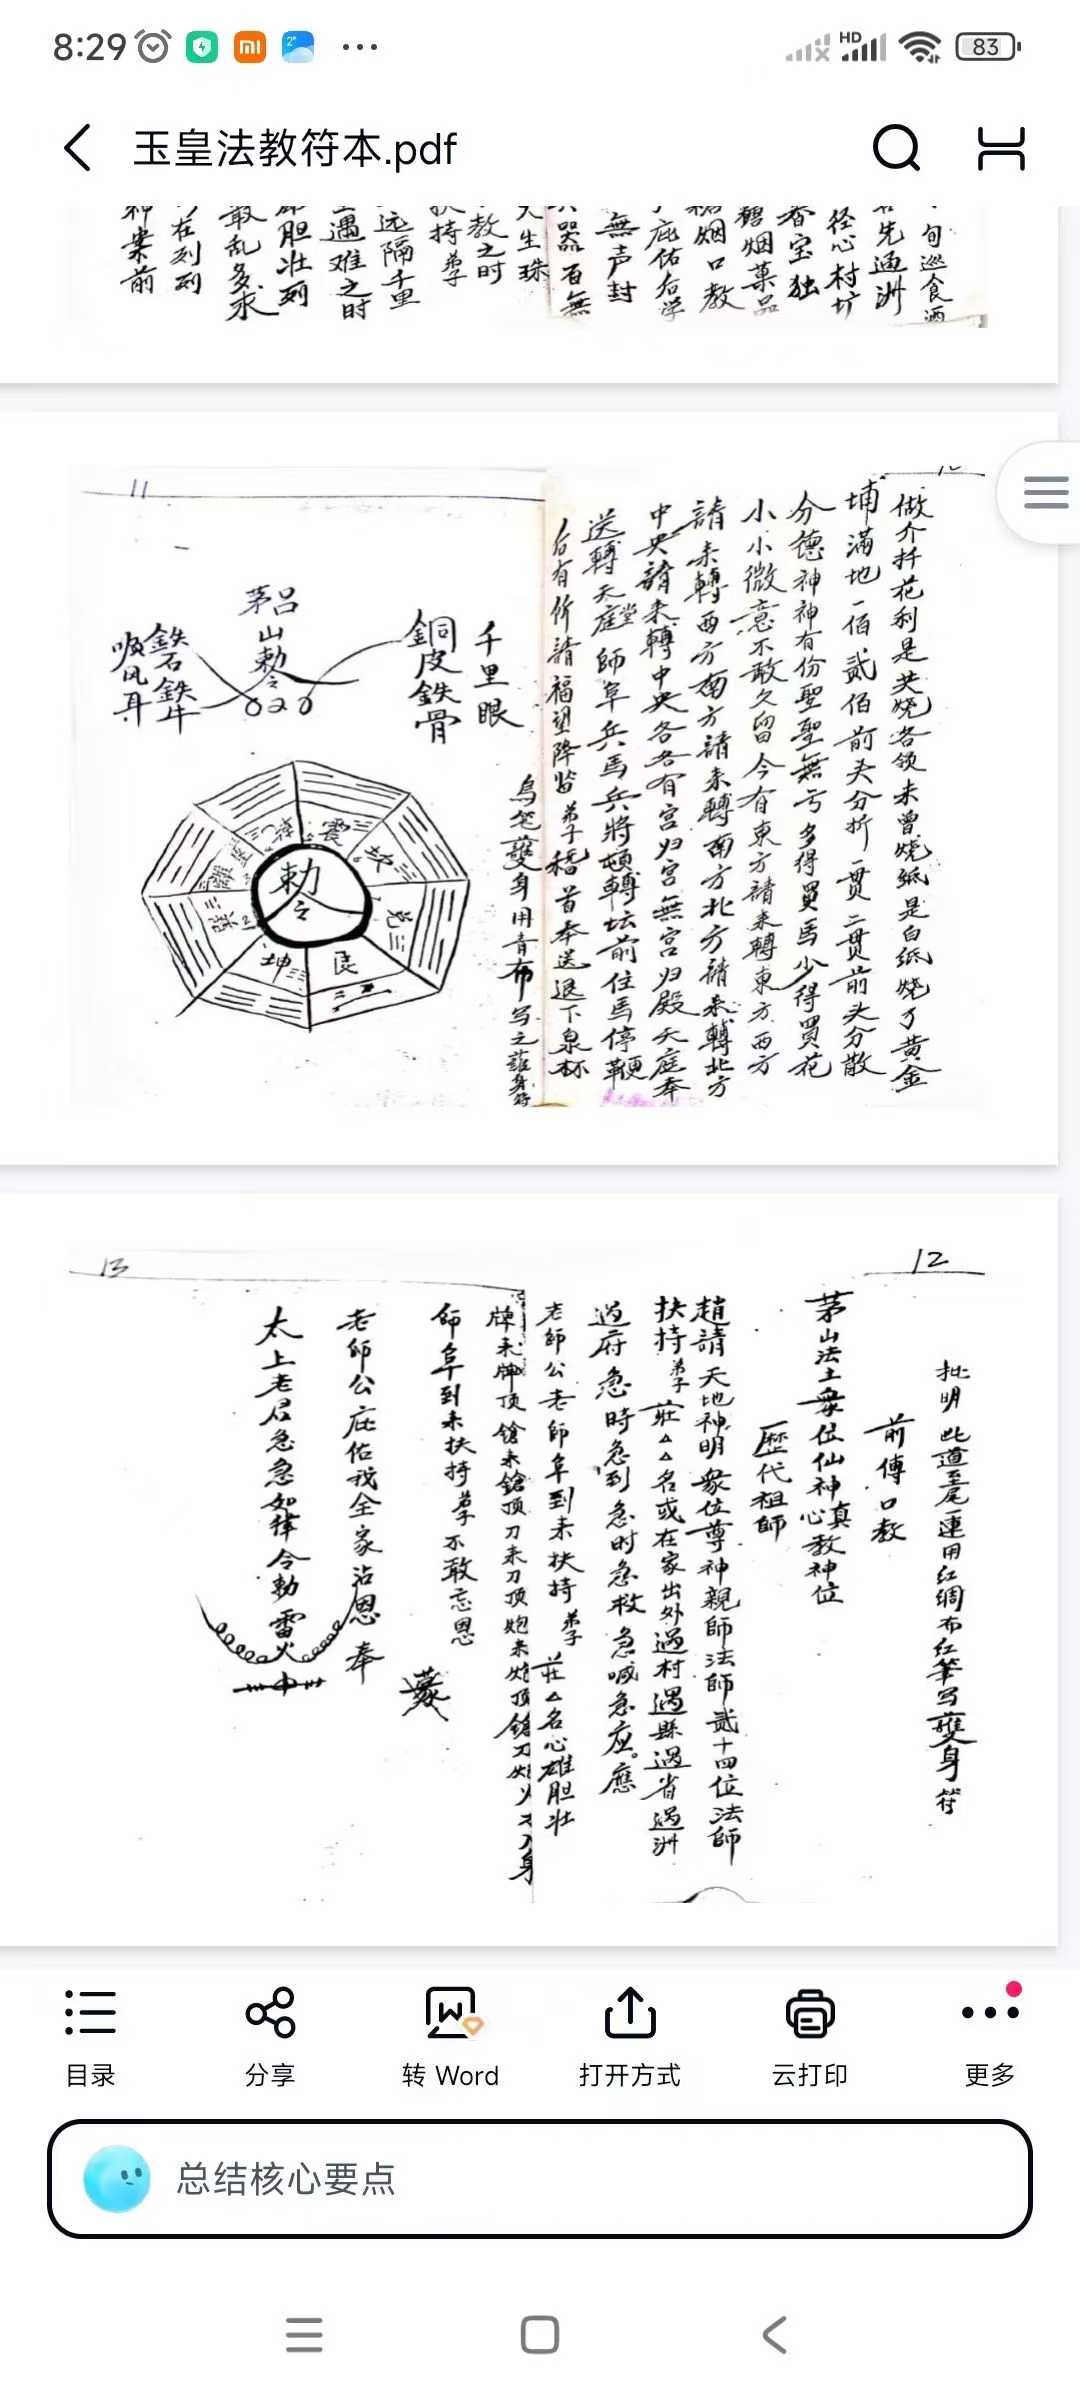 8:29
2°
HD
83
玉皇法教符本.pdf
旬巡食酒
先通洲
径心村坊
香宝独
糖烟菓品
烟口教
庇佑右学
無声封
器百無
天生珠
教之时
扶持弟子
远隔千里
遇难之时
雄胆壮列
敢乱多求
在列列
神案前
做介扦花利是共烧各领未曾烧纸是白纸烧了黄金
埔满地一佰贰佰前头分折一贯二贯前头分散
分德神神有份聖聖無亏多得買馬少得買花
小小微意不敢久留今有東方請来轉東方西方
請来轉西方南方請来轉南方北方請来轉北方
中央請来轉中央各各有宫归宫無宫归殿天庭奉
送轉天庭堂師阜兵馬兵將頓轉坛前住馬停鞭
后有所請福望降监弟子稽首奉送退下泉杯
11
茅山吕勅令
銅皮鉄骨
千里眼
鉄石鉄牛
吸风耳
勅令
震
坎
兑
艮
坤
巽
離
乾
烏笔变身用青布写之護身符
12
批明 此道至尾一連用红绸布红筆写变身符
前傳口教
茅山法主衆位仙神真心教神位
歷代祖師
趙請天地神明衆位尊神親師法師贰十四位法師
扶持弟子莊△△名或在家出外過村過縣過省過洲
過府急時急到急时急救急喊急应。應
老師公老師阜到来扶持弟子莊△名心雄胆壮
牌来牌顶鎗来鎗顶刀来刀顶炮来炮顶鎗刀炮火不入身
師阜到来扶持弟子不敢忘恩
老師公庇佑我全家沾恩奉
太上老君急急如律令勅雷火
13
目录
分享
转 Word
打开方式
云打印
更多
总结核心要点